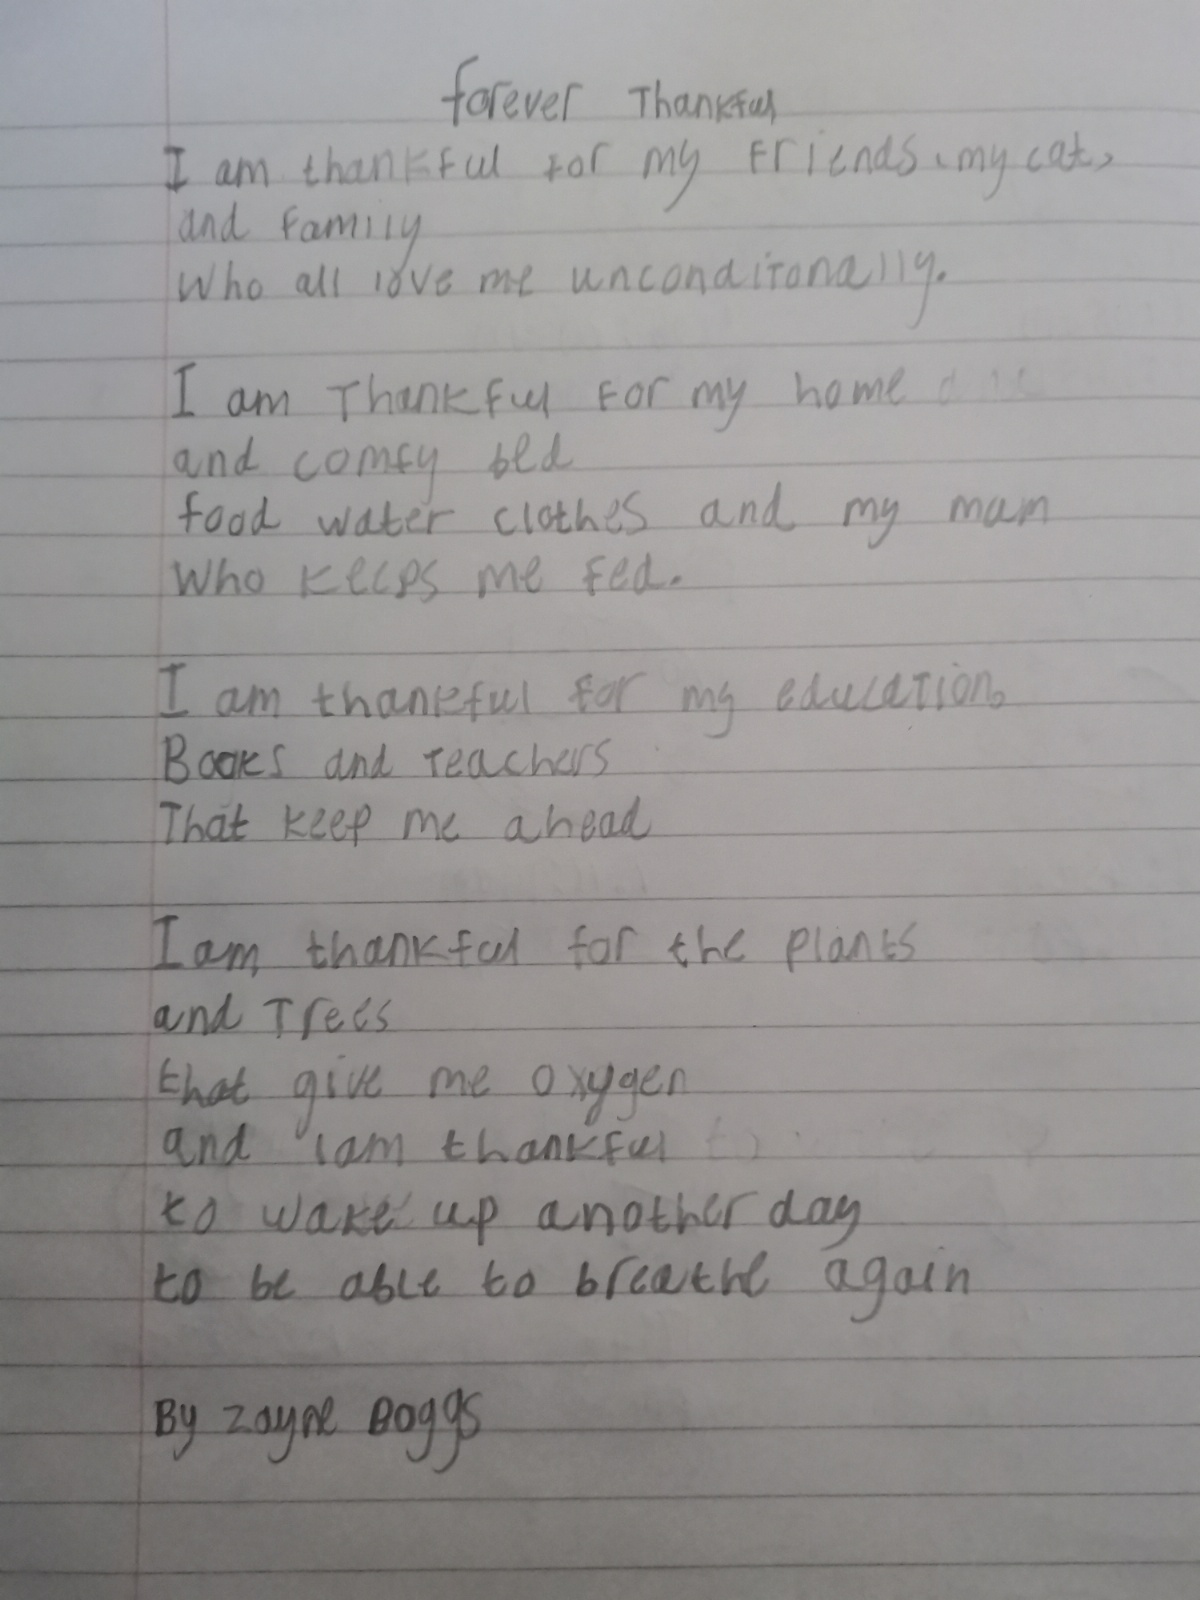 forever Thankful
I am thankful for my friends, my cat,
and family
Who all love me unconditonally.
I am Thankful for my home
and comfy bed
food water clothes and my mam
Who keeps me fed.
I am thankful for my education,
Books and teachers
That keep me ahead
I am thankful for the plants
and Trees
that give me oxygen
and iam thankful
to wake up another day
to be able to breathe again
By Zayne Boggs